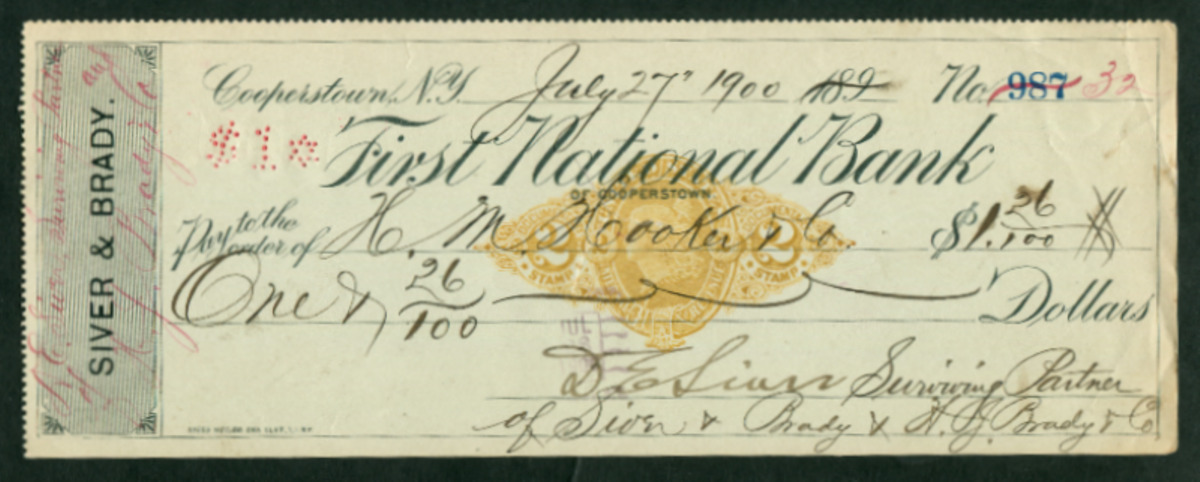 Cooperstown, N.Y. July 27" 1900 189 No. 987 32
$1
First National Bank
OF COOPERSTOWN
Pay to the order of H. M. Hooker & Co $1. 26/100
2 STAMP 2 STAMP
One & 26/100 Dollars
D E Siver Surviving Partner
of Siver & Brady & H. J. Brady & Co
SIVER & BRADY.
D. E. Siver surviving partner
of Brady & Co